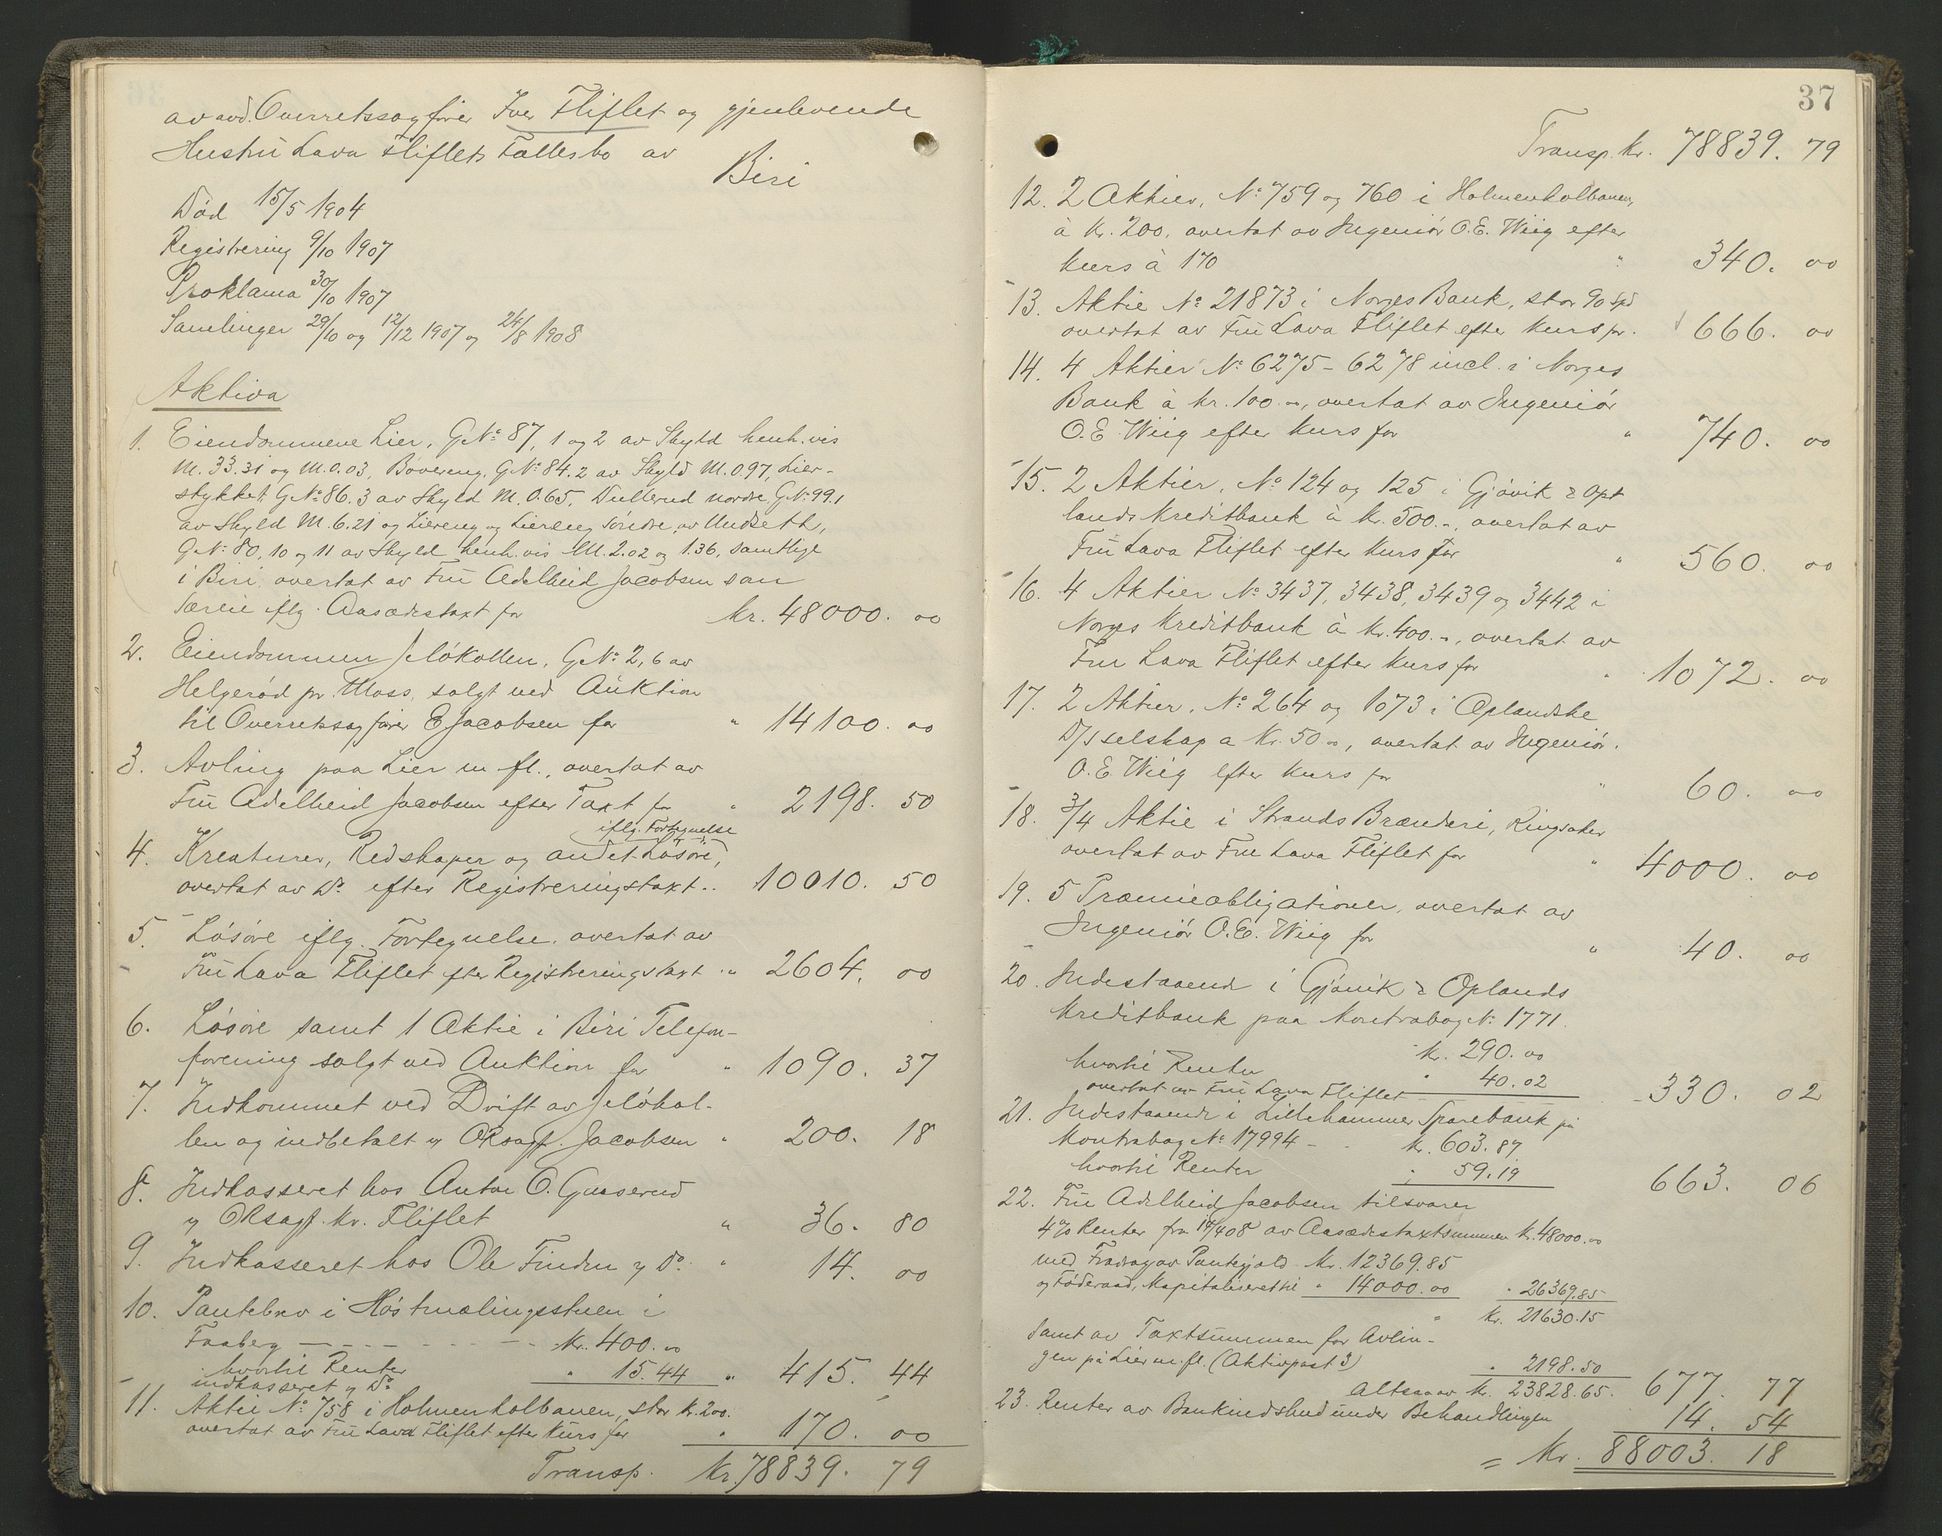 av avd. Overretssagfører Iver Fliflet og gjenlevende
Hustru Lava Fliflets Fællesbo av
Biri
Død 15/5 1904
Registrering 9/10 1907
Proklama 30/10 1907
Samlinger 29/10 og 12/12 1907 og 24/8 1908
Aktiva
1. Eiendommene Lier, G.No. 87, 1 og 2 av Skyld henh.vis
M. 33.31 og M. 0.03, Bøvereng, G.No. 84.2 av Skyld M. 0.97, Lier-
stykket, G.No. 86.3 av Skyld M. 0.65, Dullerud nordre, G.No. 99.1
av Skyld M. 6.21 og Liereng og Liereng søndre av Undseth,
G.No. 80, 10 og 11 av Skyld henh.vis M. 2.02 og 1.36, samtlige
i Biri, overtat av Fru Adelheid Jacobsen som
Særeie iflg. Aasædestaxt for kr. 48000. 00
2. Eiendommen Jeløkollen, G.No. 2, 6 av
Helgerød pr. Moss, solgt ved Auktion
til Overretssagfører E Jacobsen for " 14100. 00
3. Avling paa Lier m. fl., overtat av
Fru Adelheid Jacobsen efter Taxt for " 2198. 50
iflg. Fortegnelse
4. Kreaturer, Redskaper og andet Løsøre,
overtat av Do. efter Registreringstaxt .. 10010. 50
5. Løsøre iflg. Fortegnelse, overtat av
Fru Lava Fliflet efter Registreringstaxt " 2604. 00
6. Løsøre samt 1 Aktie i Biri Telefon-
forening solgt ved Auktion for " 1090. 37
7. Indkommet ved Drift av Jeløkol-
len og indbetalt v. ORsagf. Jacobsen " 200. 18
8. Indkasseret hos Anton O. Gaaserud
v. ORsagf. kr. Fliflet " 36. 80
9. Indkasseret hos Ole Finden v. Do. " 14. 00
10. Pantebrev i Høstmælingsstuen i
Faaberg - - - - - kr. 400. 00
hvortil Renter " 15.44 " 415. 44
indkasseret v. Do.
11. Aktie No. 758 i Holmenkolbanen, stor kr. 200.
overtat av Fru Lava Fliflet efter kurs for " 170. 00
Transp. kr. 78839. 79
37
Transp. kr. 78839. 79
12. 2 Aktier, No. 759 og 760 i Holmenkolbanen,
à kr. 200, overtat av Ingeniør O.E. Wiig efter
kurs à 170 " 340. 00
13. Aktie No. 21873 i Norges Bank, stor 90 Spd
overtat av Fru Lava Fliflet efter kurs pr. 666. 00
14. 4 Aktier No. 6275 - 6278 incl. i Norges
Bank à kr. 100.-, overtat av Ingeniør
O.E. Wiig efter kurs for " 740. 00
15. 2 Aktier, No. 124 og 125 i Gjøvik & Opl
lands Kreditbank à kr. 500.-, overtat av
Fru Lava Fliflet efter kurs for " 560. 00
16. 4 Aktier No. 3437, 3438, 3439 og 3442 i
Norges Kreditbank à kr. 400.-, overtat av
Fru Lava Fliflet efter kurs for " 1072. 00
17. 2 Aktier, No. 264 og 1073 i Oplandske
D/Sselskap a kr. 50.-, overtat av Ingeniør.
O.E Wiig efter kurs for " 60. 00
18. 3/4 Aktie i Strands Brænderi, Ringsaker
overtat av Fru Lava Fliflet for " 4000. 00
19. 5 Præmieobligationer, overtat av
Ingeniør O.E. Wiig for " 40. 00
20. Indestaaende i Gjøvik & Oplands
Kreditbank paa Kontrabog No. 1771.
kr. 290.00
hvortil Renter " 40.02 330. 02
overtat av Fru Lava Fliflet
21. Indestaaende i Lillehammer Sparebank på
Kontrabog No. 17994 - kr. 603.87
hvortil Renter " 59.19 663. 06
22. Fru Adelheid Jacobsen tilsvarer
4% Renter fra 14/4 08 av Aasædestaxtsummen kr. 48000.00
med Fradrag av Pantegjæld kr. 12369.85
og Føderaad, kapitaliseret til " 14000.00 " 26369.85
" kr. 21630.15
samt av Taxtsummen for Avlin-
gen på Lier m. fl. (Aktivpost 3) " 2198.50
Altsaa av kr. 23828.65. 677. 77
23. Renter av Bankindskud under Behandlingen 14. 54
= kr. 88003. 18